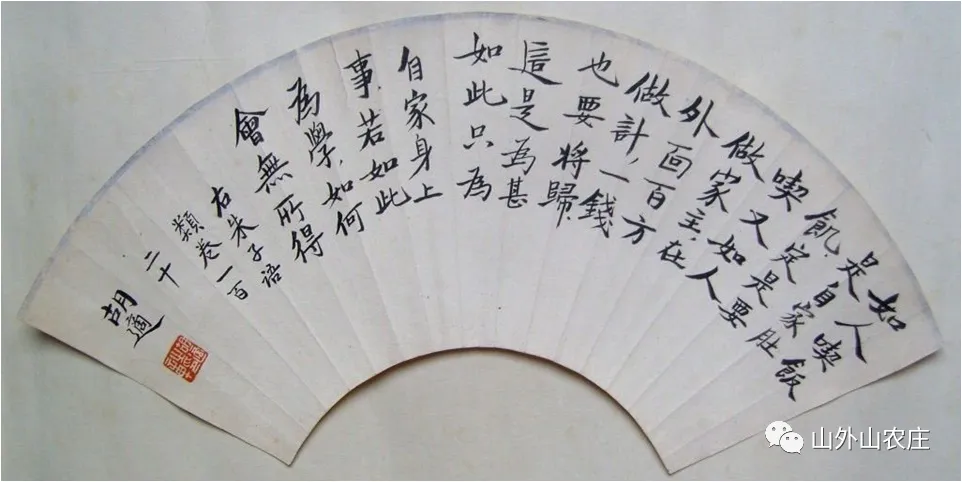 如人喫飯
是自家肚
飢,定是要
喫又如人
做家主,在
外面百方
做計,一錢
也要將歸,
這是為甚
如此只為
自家身上
事,若如此
為學,如何
會無所得
右朱子語
類卷一百
二十
胡適
山外山农庄